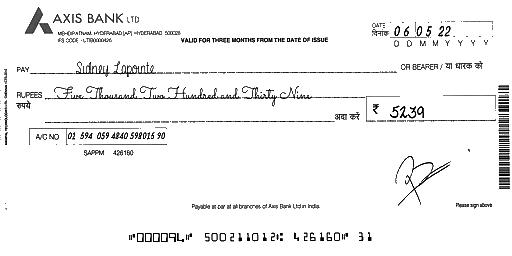 AXIS BANK LTD
MEHDIPATNAM, HYDERABAD (AP) HYDERABAD 500028
IFS CODE - UTIB0000426
VALID FOR THREE MONTHS FROM THE DATE OF ISSUE
DATE दिनांक 06 05 22
D D M M Y Y Y Y
PAY Sidney Lapointe OR BEARER / या धारक को
RUPEES Five Thousand Two Hundred and Thirty Nine
रुपये अदा करें ₹ 5239
A/C NO 02 594 059 4840 598016 90
SAPPM 426160
Payable at par at all branches of Axis Bank Ltd in India.
Please sign above
⑈00009L⑈ 500211012⑆ 426160⑈ 31